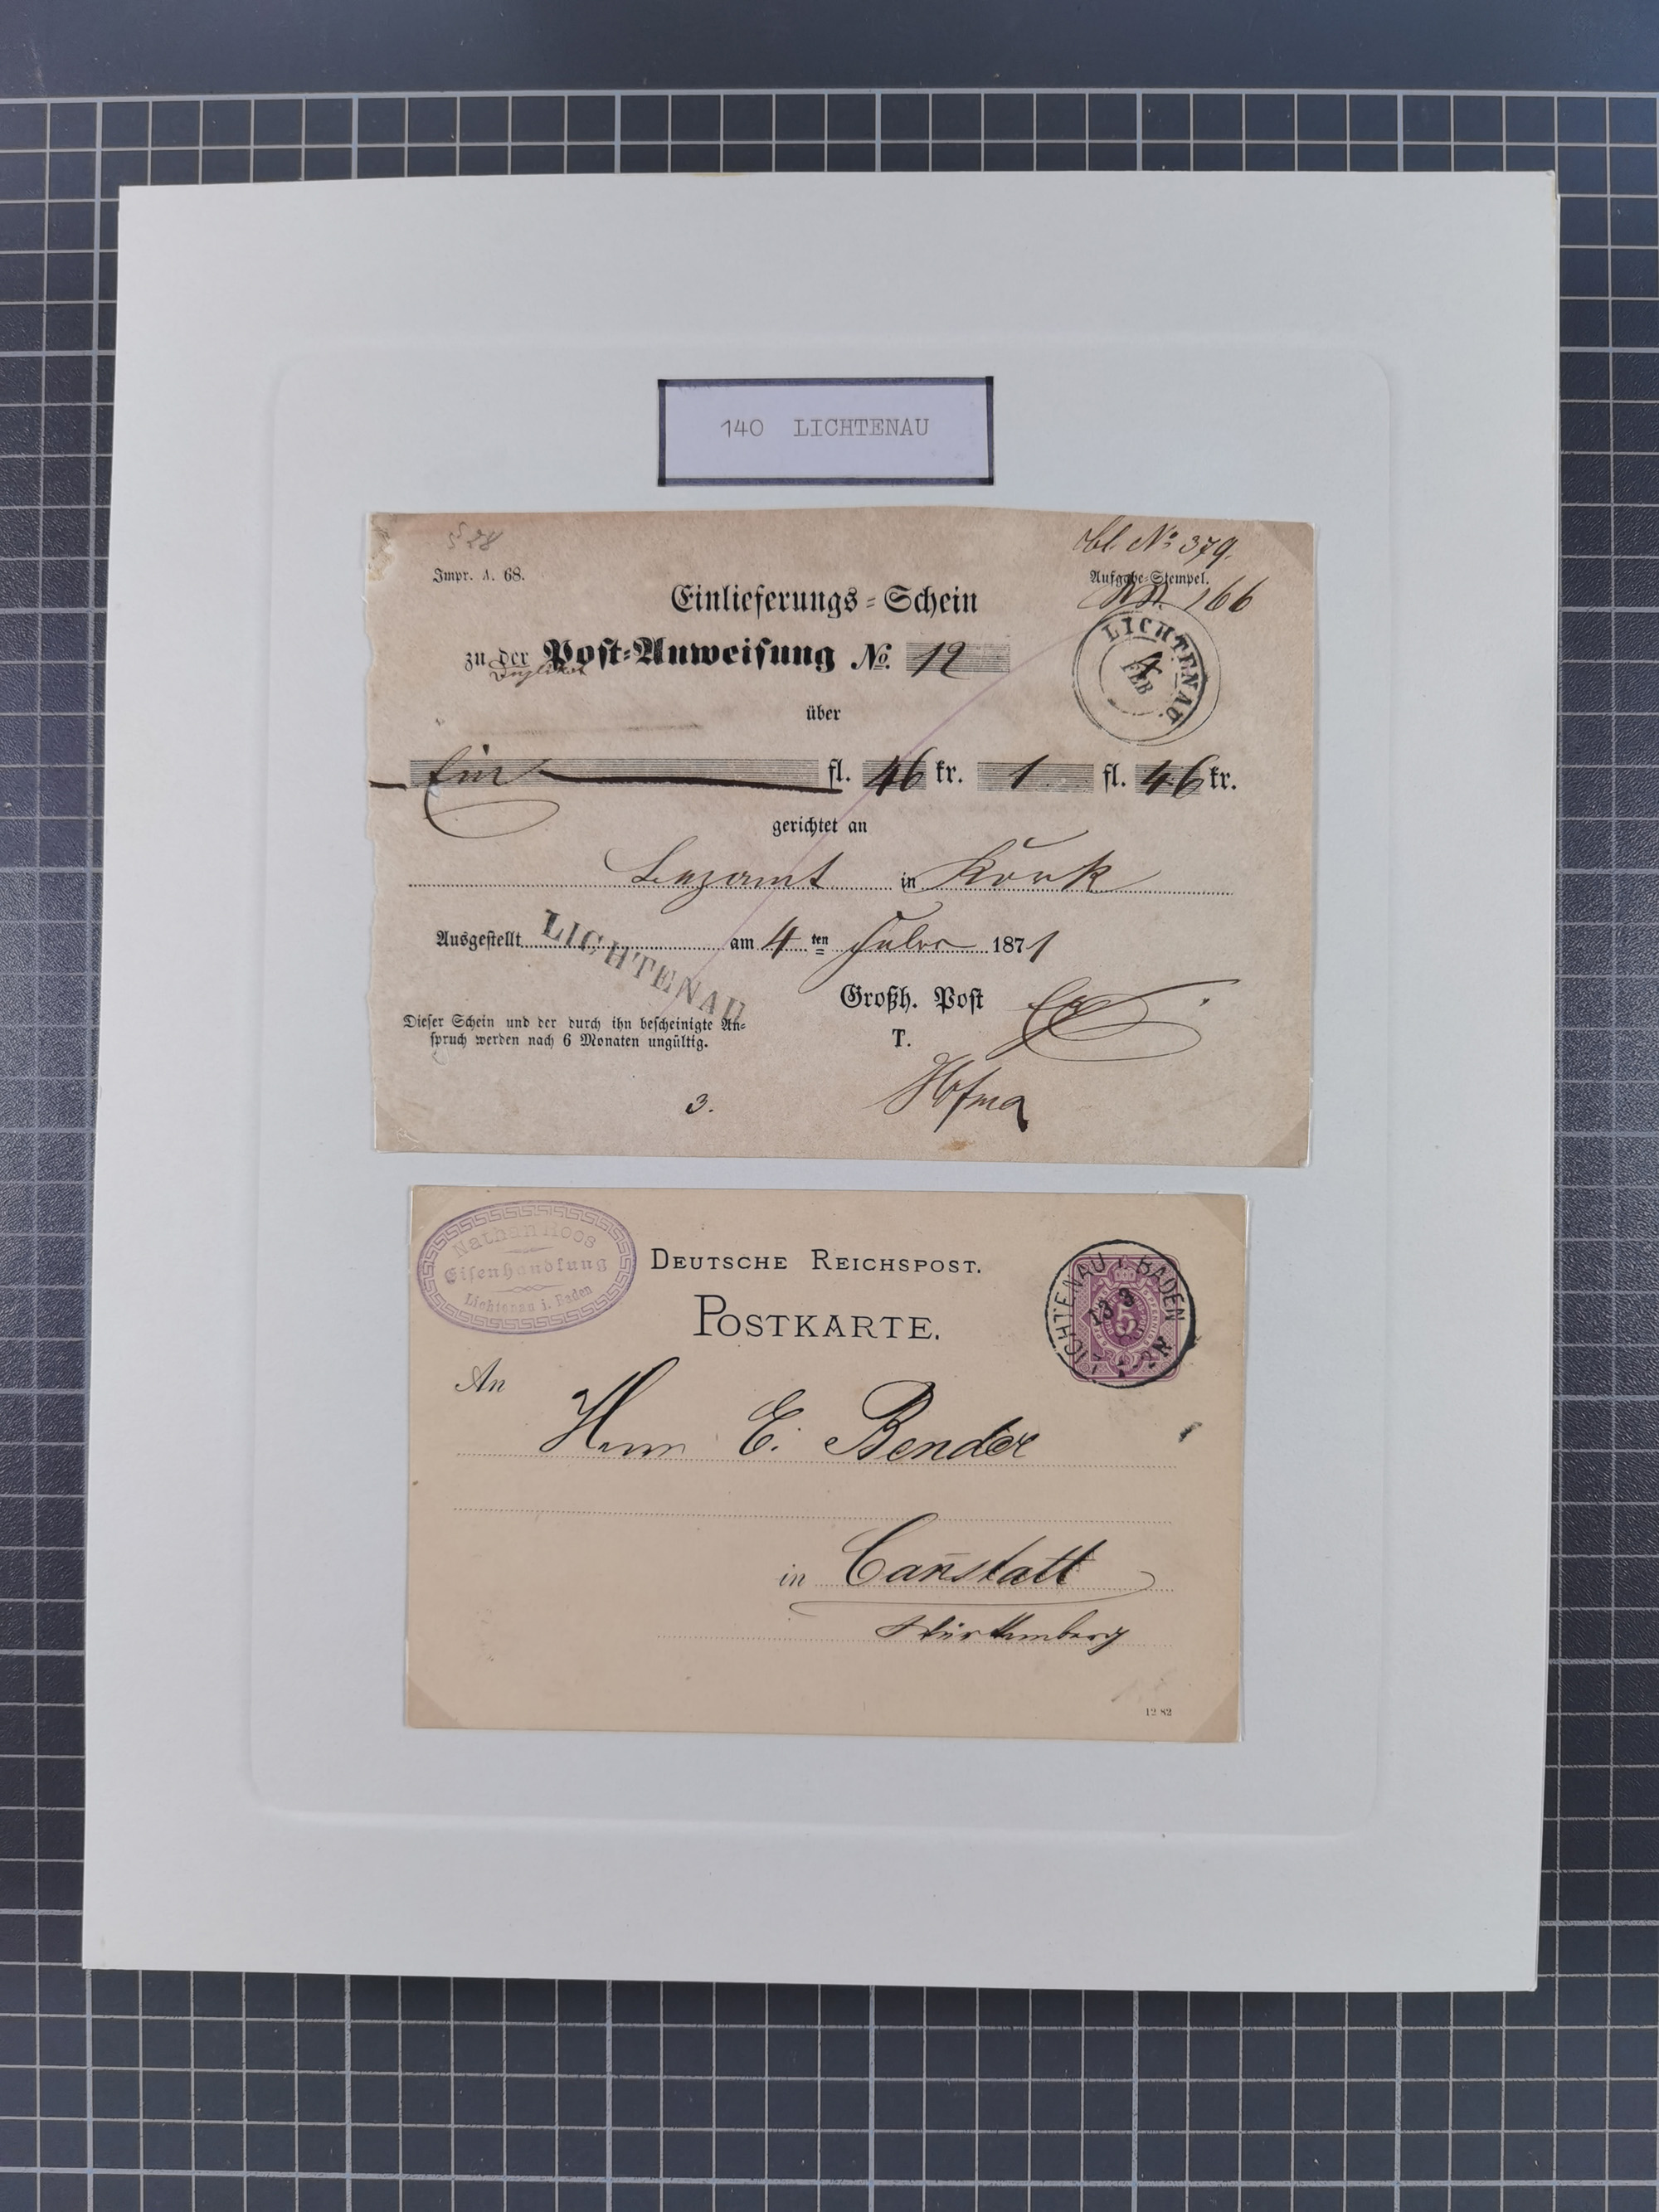 140 LICHTENAU
Impr. A. 68.
No 379.
Aufgabe-Stempel.
166
Einlieferungs-Schein
zu der Post-Anweisung No. 12
LICHTENAU
4
FEB
über
Ein fl. 46 kr. 1 fl. 46 kr.
gerichtet an
in Kork
Ausgestellt LICHTENAU am 4 ten 1871
Großh. Post
Dieser Schein und der durch ihn bescheinigte An-
spruch werden nach 6 Monaten ungültig.
T.
3.
Nathan Roos
Eisenhandlung
Lichtenau i. Baden
DEUTSCHE REICHSPOST.
POSTKARTE.
LICHTENAU i. BADEN
An
Herrn E. Bender
in Canstatt
Württemberg
12 82